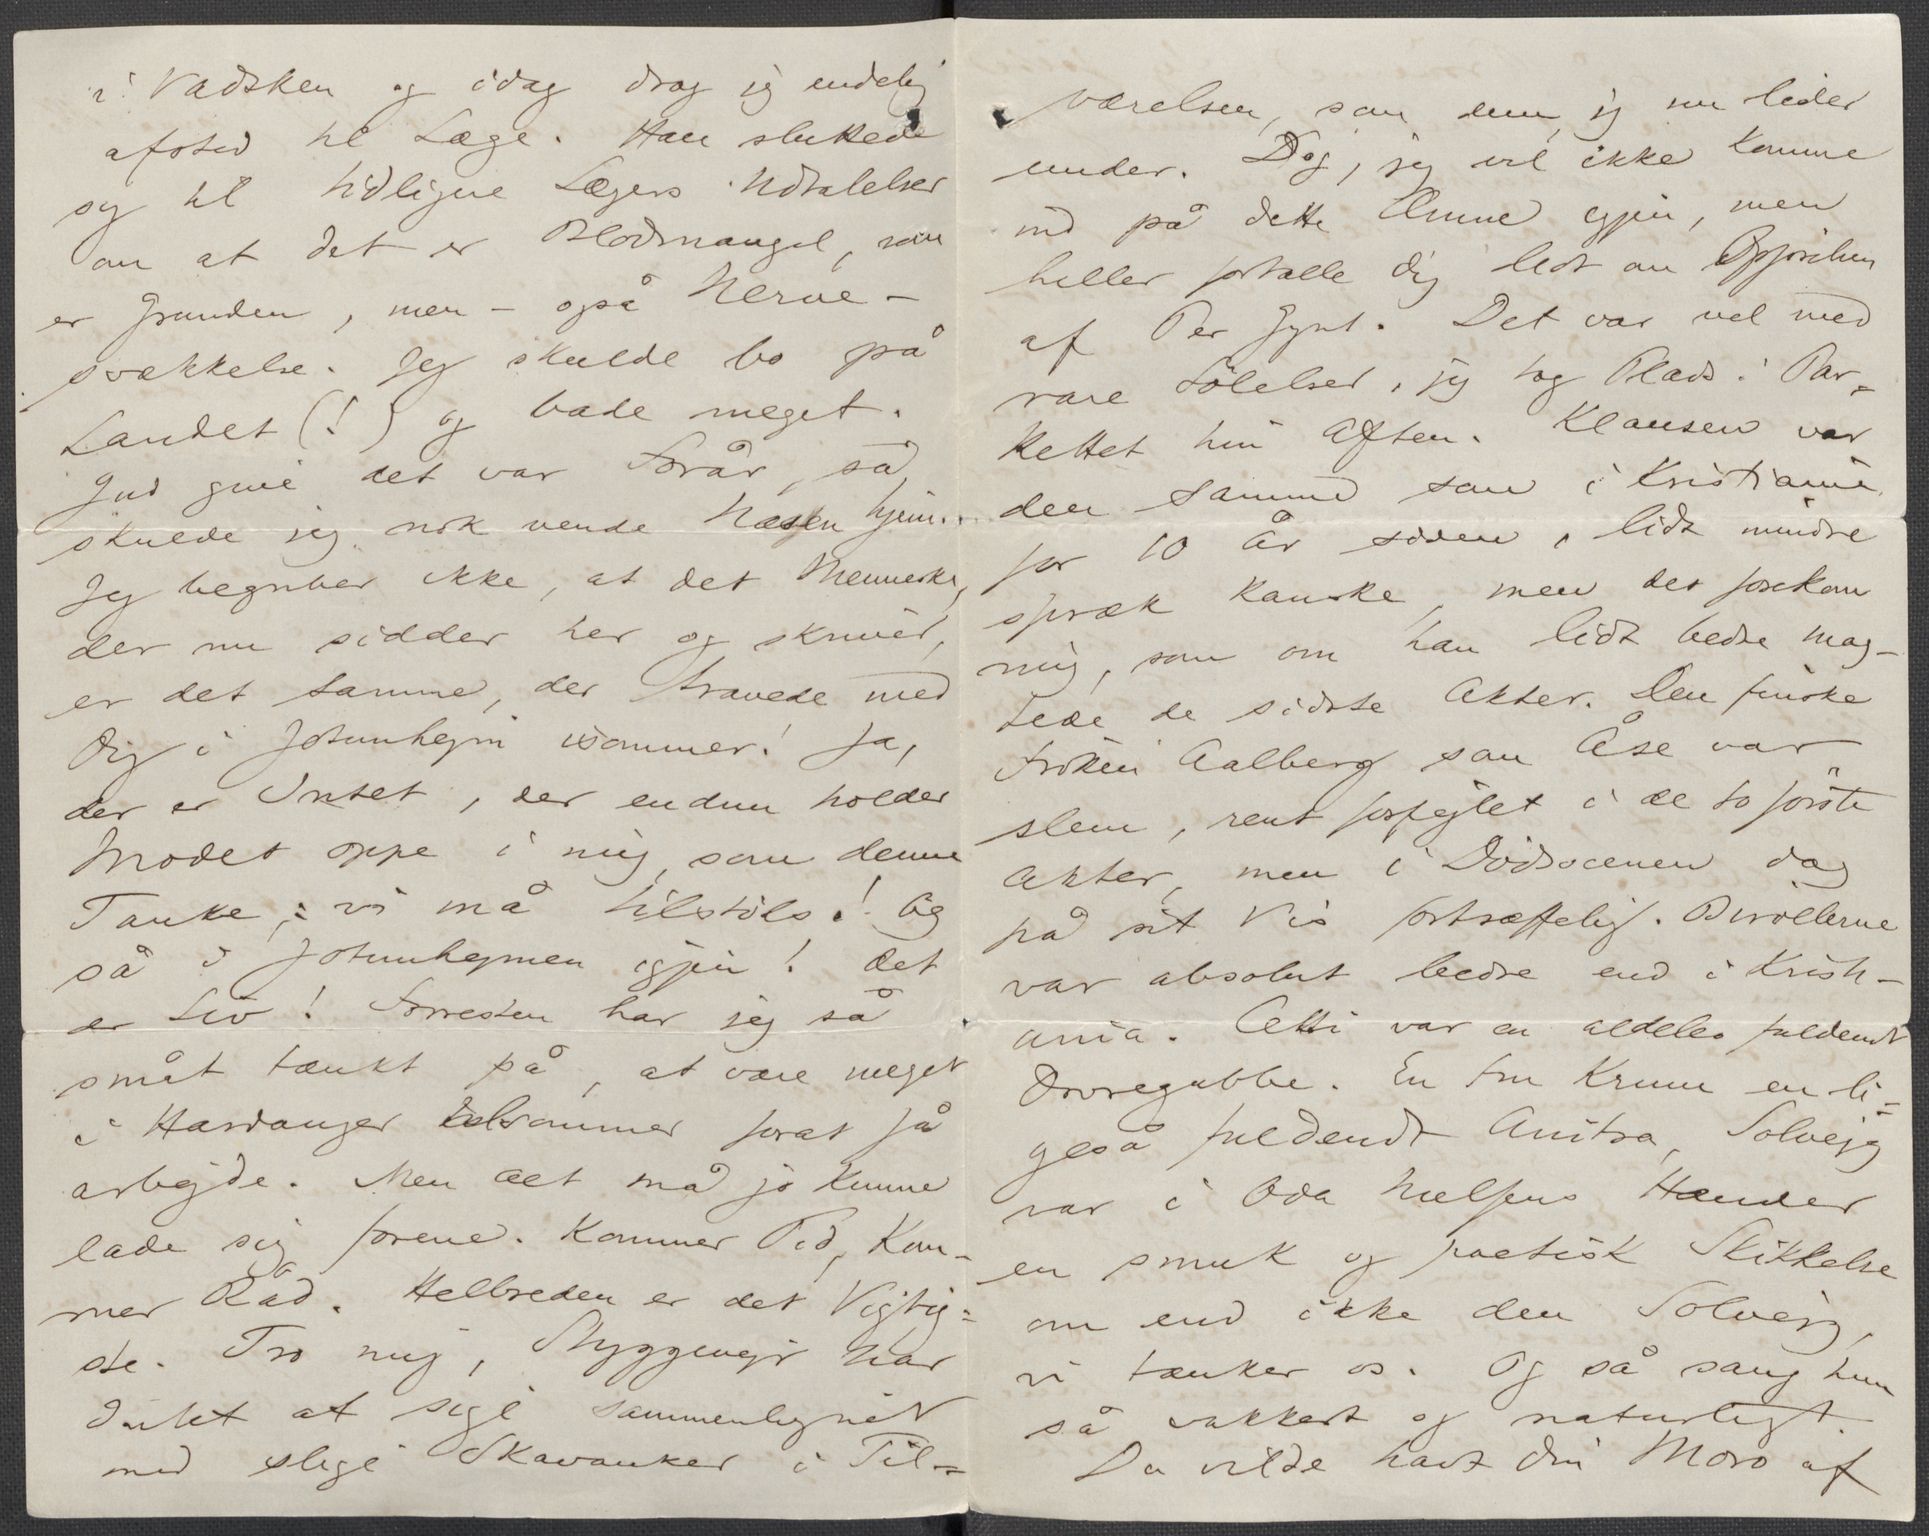 i Nadsken og idag drog jeg endelig
afsted til Læge. Han sluttede
sig til tidligere Lægers Udtalelser
om at det er Blodmangel, som
er Grunden, men – også Nerve-
svækkelse. Jeg skulde bo på
Landet (!) og bade meget.
Gud give det var Forår, så
skulde jeg nok vende Næsen hjem.
Jeg begriber ikke, at det Menneske,
der nu sidder her og skriver,
er det samme, der travede med
Dig i Jotunhejm isommer! Ja,
der er Intet, der endnu holder
Modet oppe i mig som denne
Tanke: vi må tilstøls! Og
så i Jotunhejmen igjen! Det
er Liv! Forresten har jeg så
småt tænkt på, at være meget
i Hardanger isommer forat få
arbejde. Men det må jo kunne
lade sig forene. Kommer Tid, Kom-
mer Råd. Helbreden er det Vigtig=
ste. Tro mig, Styggevejr har
Intet at sige sammenlignet
med slige Skavanker i Til=
værelsen, som dem jeg nu lider
under. Dog, jeg vil ikke komme
ind på dette Emne igjen, men
heller fortælle Dig lidt om Opførelsen
af Per Gynt. Det var vel med
rare Følelser, jeg tog Plads i Par=
kettet hin Aften. Klausen var
den samme som i Kristiania
for 10 År siden, lidt mindre
spræk kanske, men det forekom
mig, som om han lidt bedre mag-
tede de sidste Akter. Den finske
Frøken Aalberg som Åse var
slem, rent forfejlet i de to første
Akter, men i Dødsscenen dog
på sit Vis fortræffelig. Birollerne
var absolut bedre end i Kristi-
ania. Atti var en aldeles fuldendt
Dovregubbe. En Fru Krum en li=
geså fuldendt Anitra, Solvejg
var i Oda Nielsens Hænder
en smuk og poetisk Skikkelse
om end ikke den Solvejg,
vi tænker os. Og så sang hun
så vakkert og naturligt.
Du vilde havt din Moro af